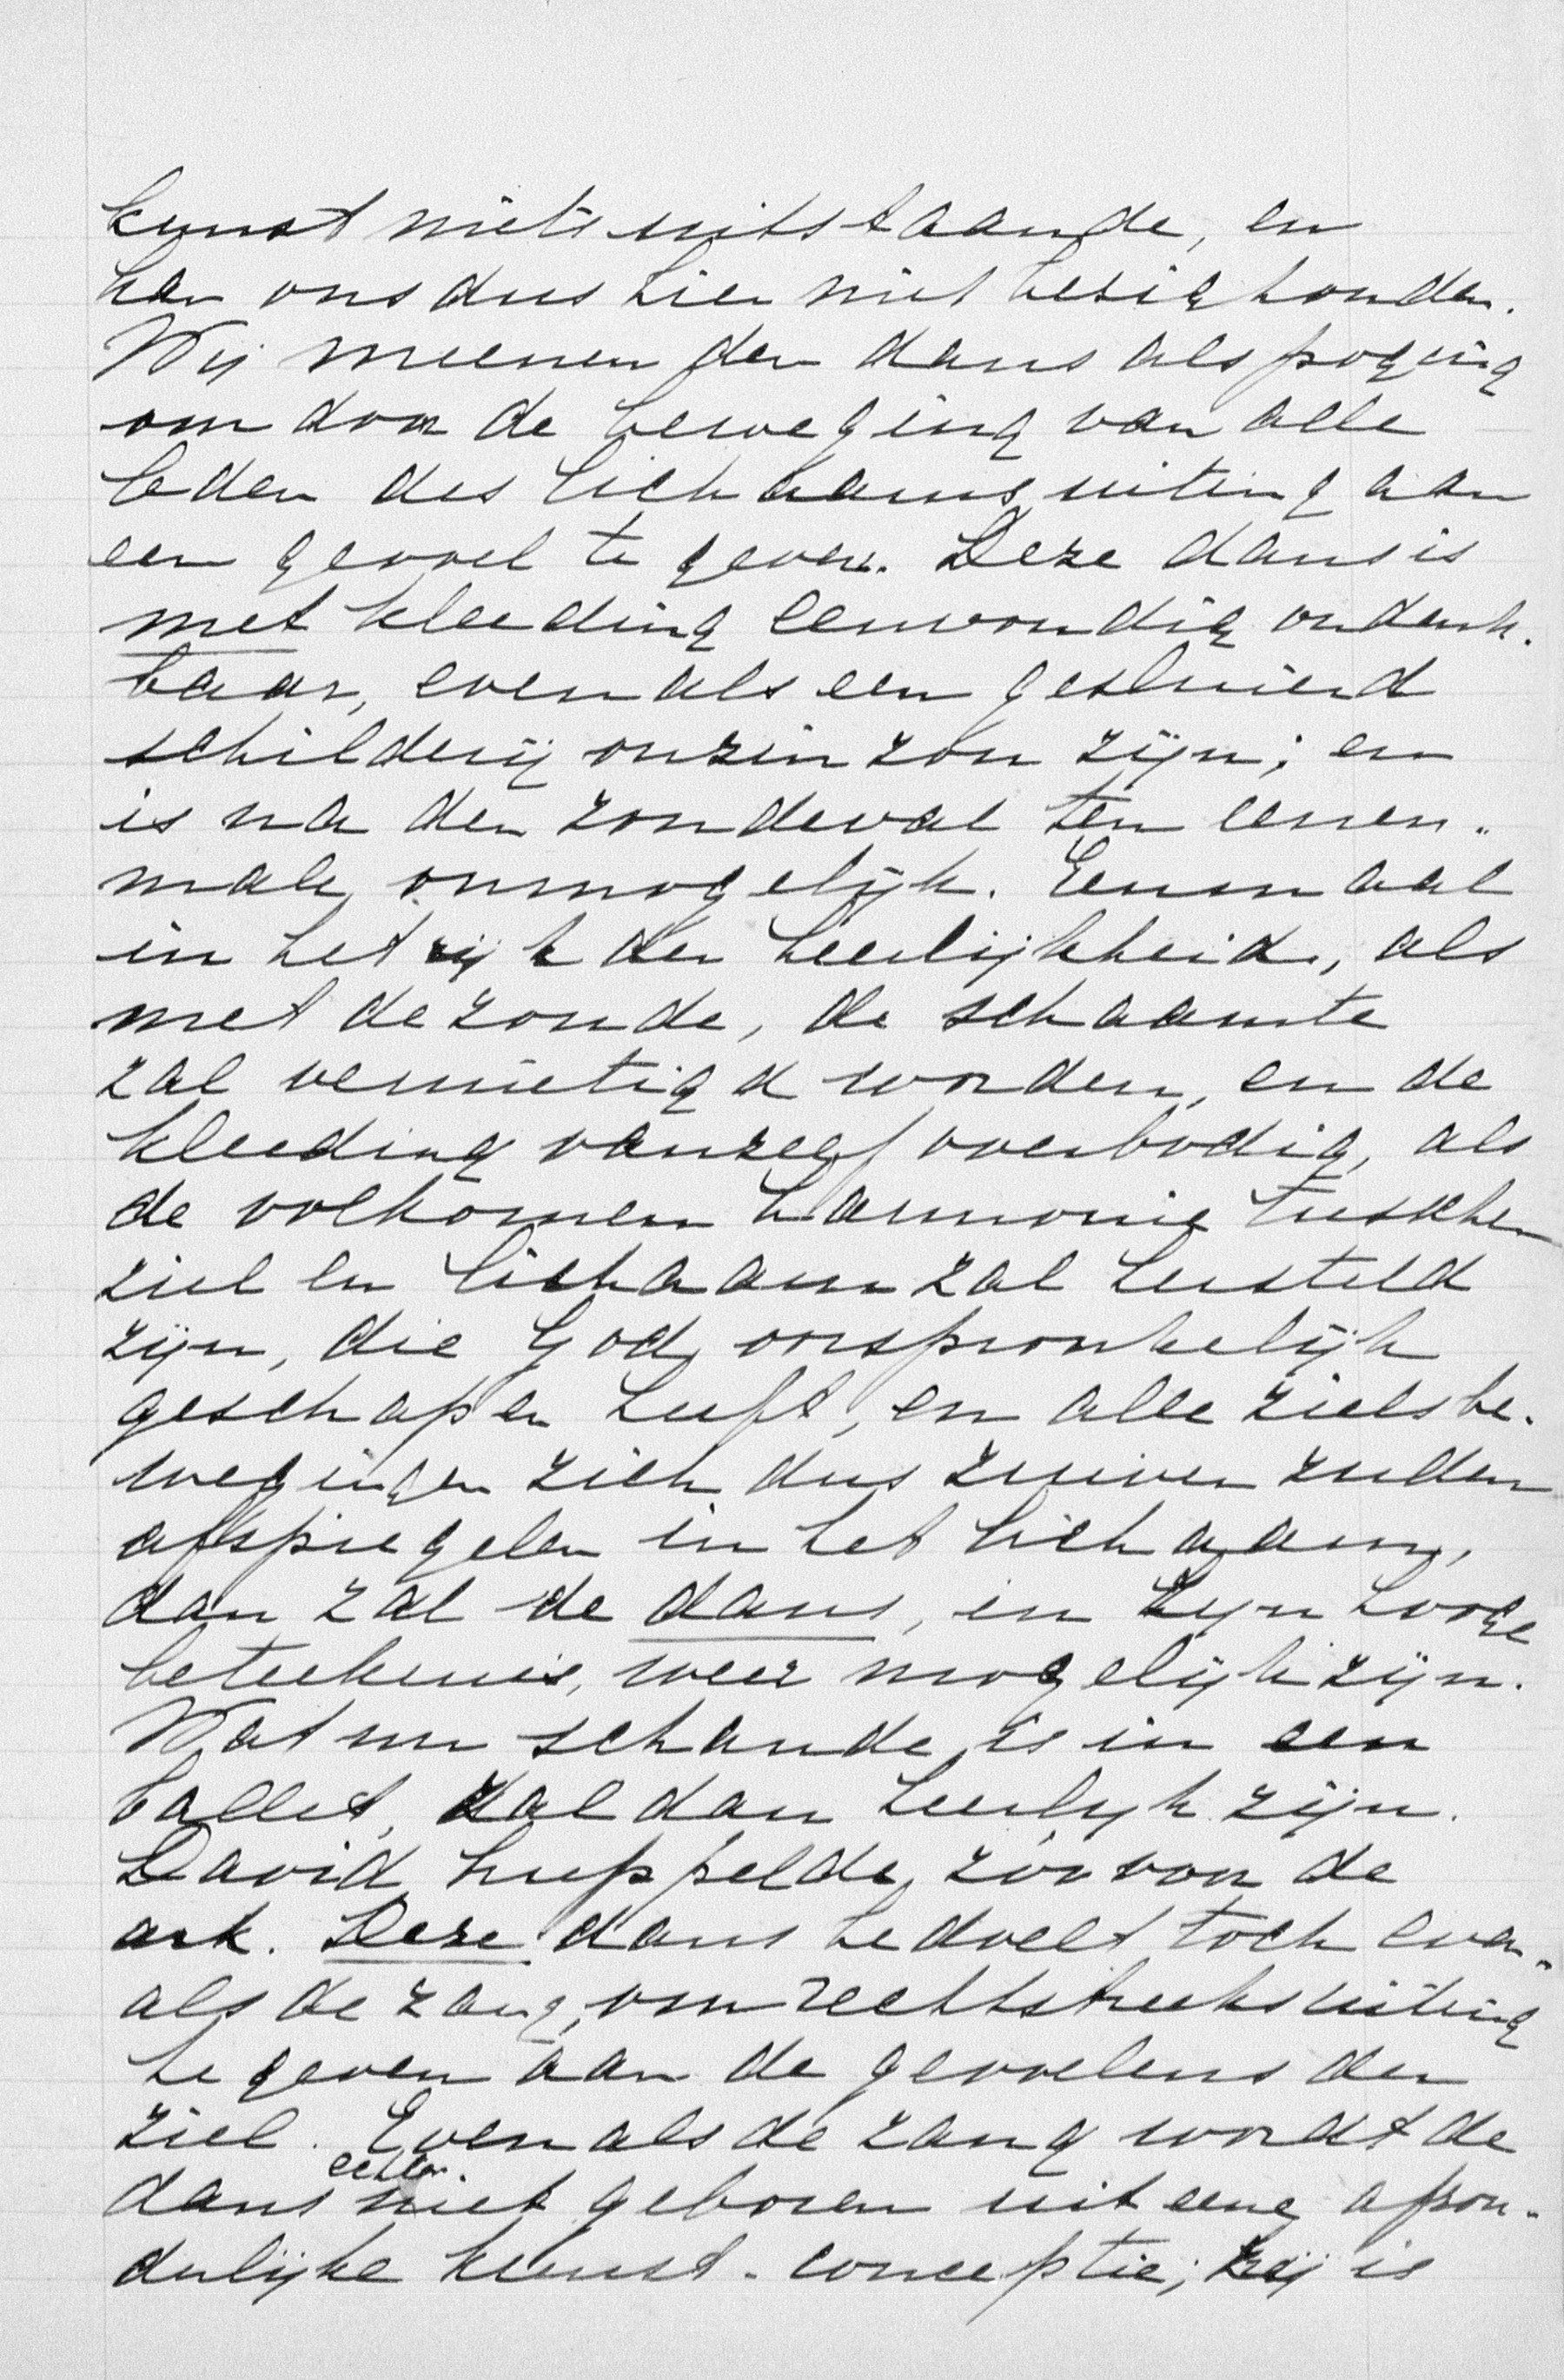 kunst niets uitstaande, en
kan ons dus hier niet bezighouden.
Wij meenen den dans als poging
om door de beweging van alle
leden des lichaams uiting aan
een gevoel te geven. Deze dans is
met kleeding eenvoudig ondenk-
baar, evenals een gesluierd
schilderij onzin zou zijn; en
is na den zondeval ten eenen-
male onmogelijk. Eenmaal
in het rijk der heerlijkheid, als
met de zonde, de schaamte
zal vernietigd worden, en de
kleeding vanzelf overbodig, als
de volkomen harmonie tusschen
ziel en lichaam zal hersteld
zijn, die God oorspronkelijk
geschapen heeft, en alle zielsbe-
wegingen zich dus zuiver zullen
afspiegelen in het lichaam,
dan zal de dans, in zijn hooge
beteekenis, weer mogelijk zijn.
Wat nu schande is in een
ballet, zal dan heerlijk zijn.
David huppelde zóó voor de
ark. Deze dans bedoelt toch even-
als de zang, om rechtstreeks uiting
te geven aan de gevoelens der
ziel. Evenals de zang wordt de
dans echter niet geboren uit eene afzon-
derlijke kunst-conceptie; zij is